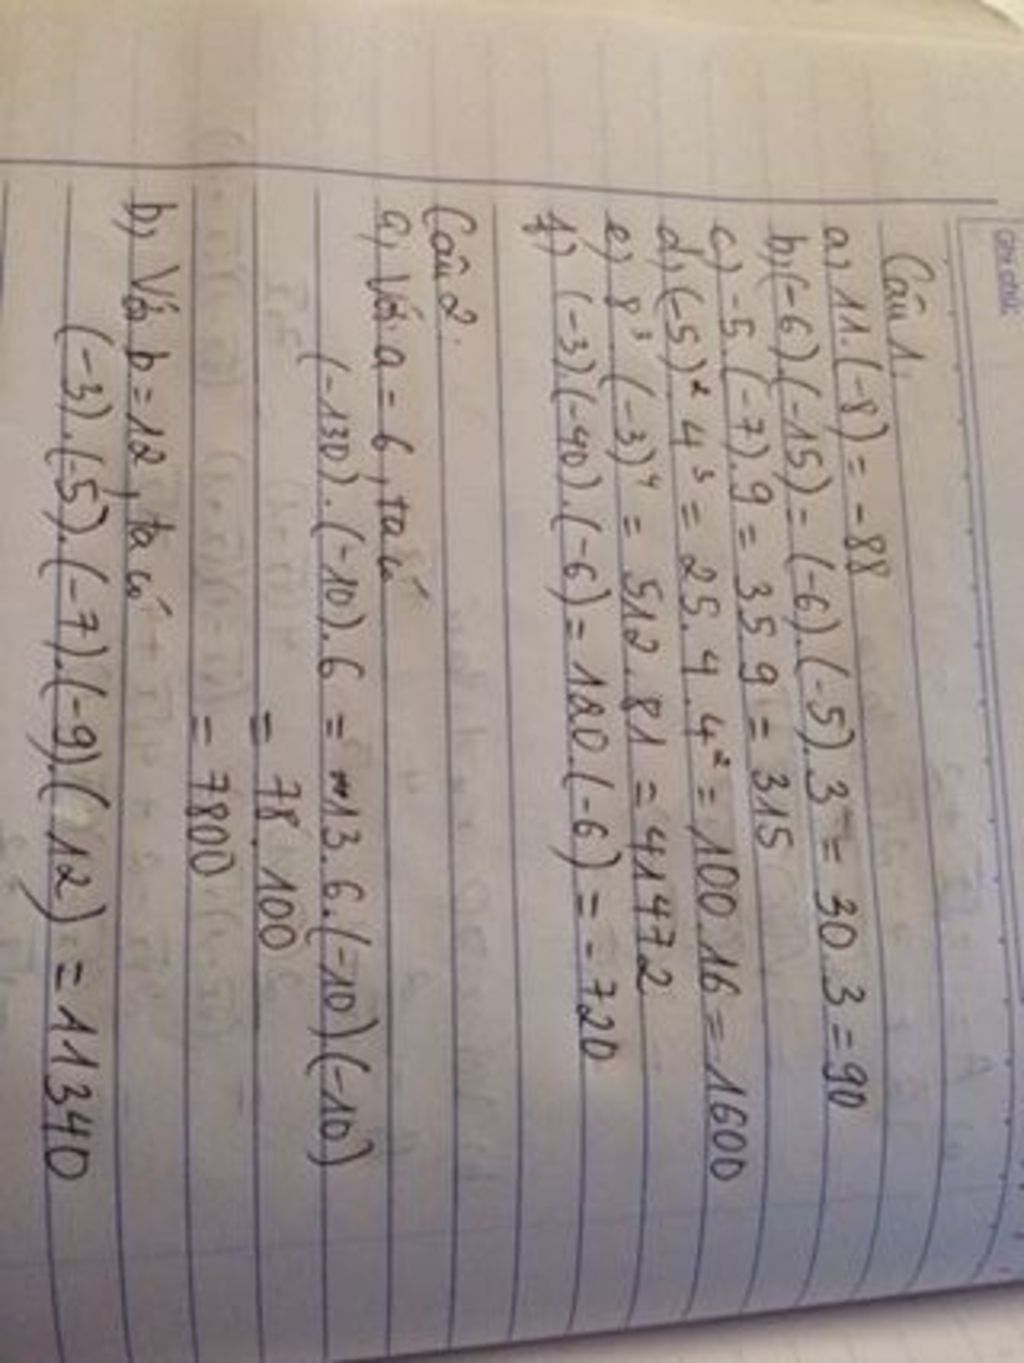 Ghi chú:
Câu 1.
a) 11.(-8) = -88
b) (-6).(-15) = (-6).(-5).3 = 30.3 = 90
c) -5.(-7).9 = 35.9 = 315
d) (-5)² 4³ = 25.4.4² = 100.16 = 1600
e) 8³.(-3)⁴ = 512.81 = 41472
f) (-3).(-40).(-6) = 120.(-6) = -720
Câu 2.
a) Với a = 6, ta có
(-130).(-10).6 = 13.6.(-10)(-10)
= 78.100
= 7800
b) Với b = 12, ta có
(-3).(-5).(-7).(-9).(12) = 11340